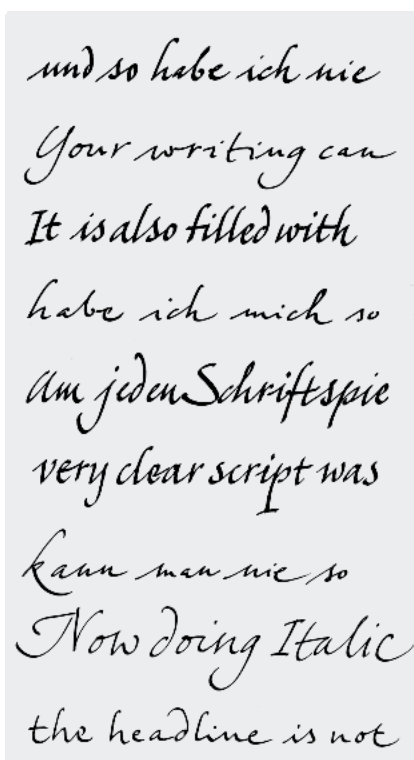 und so habe ich nie
Your writing can
It is also filled with
habe ich mich so
Am jeden Schriftspie
very clear script was
kann man nie so
Now doing Italic
the headline is not